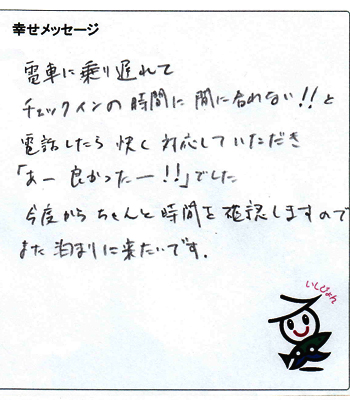 幸せメッセージ
電車に乗り遅れて
チェックインの時間に間に合わない!!と
電話したら快く対応していただき
「あー良かったー!!」でした
今度からちゃんと時間を確認しますので
また泊まりに来たいです.
いしぴょん